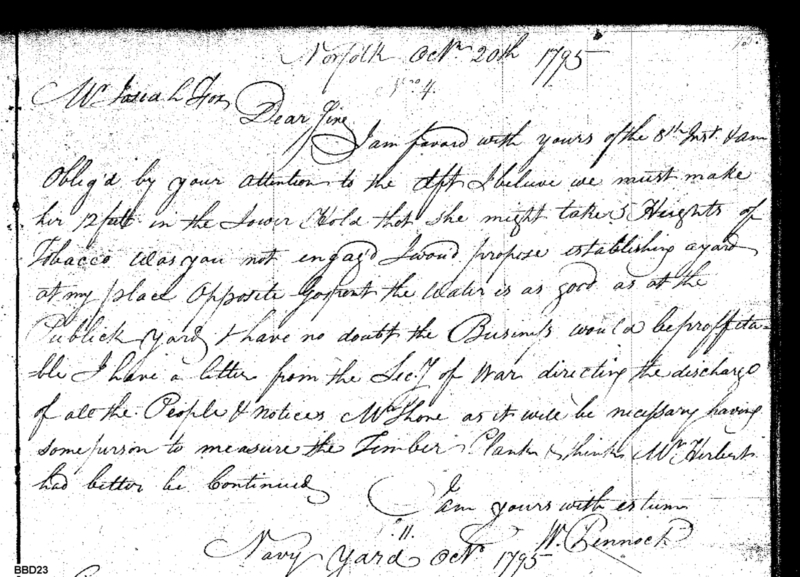 Norfolk Octr 20th 1795
No 4.
Mr Josiah Fox
Dear Sire
I am favord with yours of the 8th Inst. & am
Oblig'd by your attention to the dft I beleive we must make
her 12 feet in the Lower Hold that she might take 5 Heights of
Tobacco was you not engag'd I woud propose establishing a yard
at my place Opposite Gosport the Water is as good as at the
Publick yard & have no doubt the Business would be proffita-
ble I have a letter from the Secy of War directing the discharge
of all the People & notices Mr Thone as it will be necessary having
some person to measure the Timber Plank & think Mr Herbert
had better be Continued
I am yours with esteem
Wm Pennock
11.
Navy Yard Octr 1795
BBD23